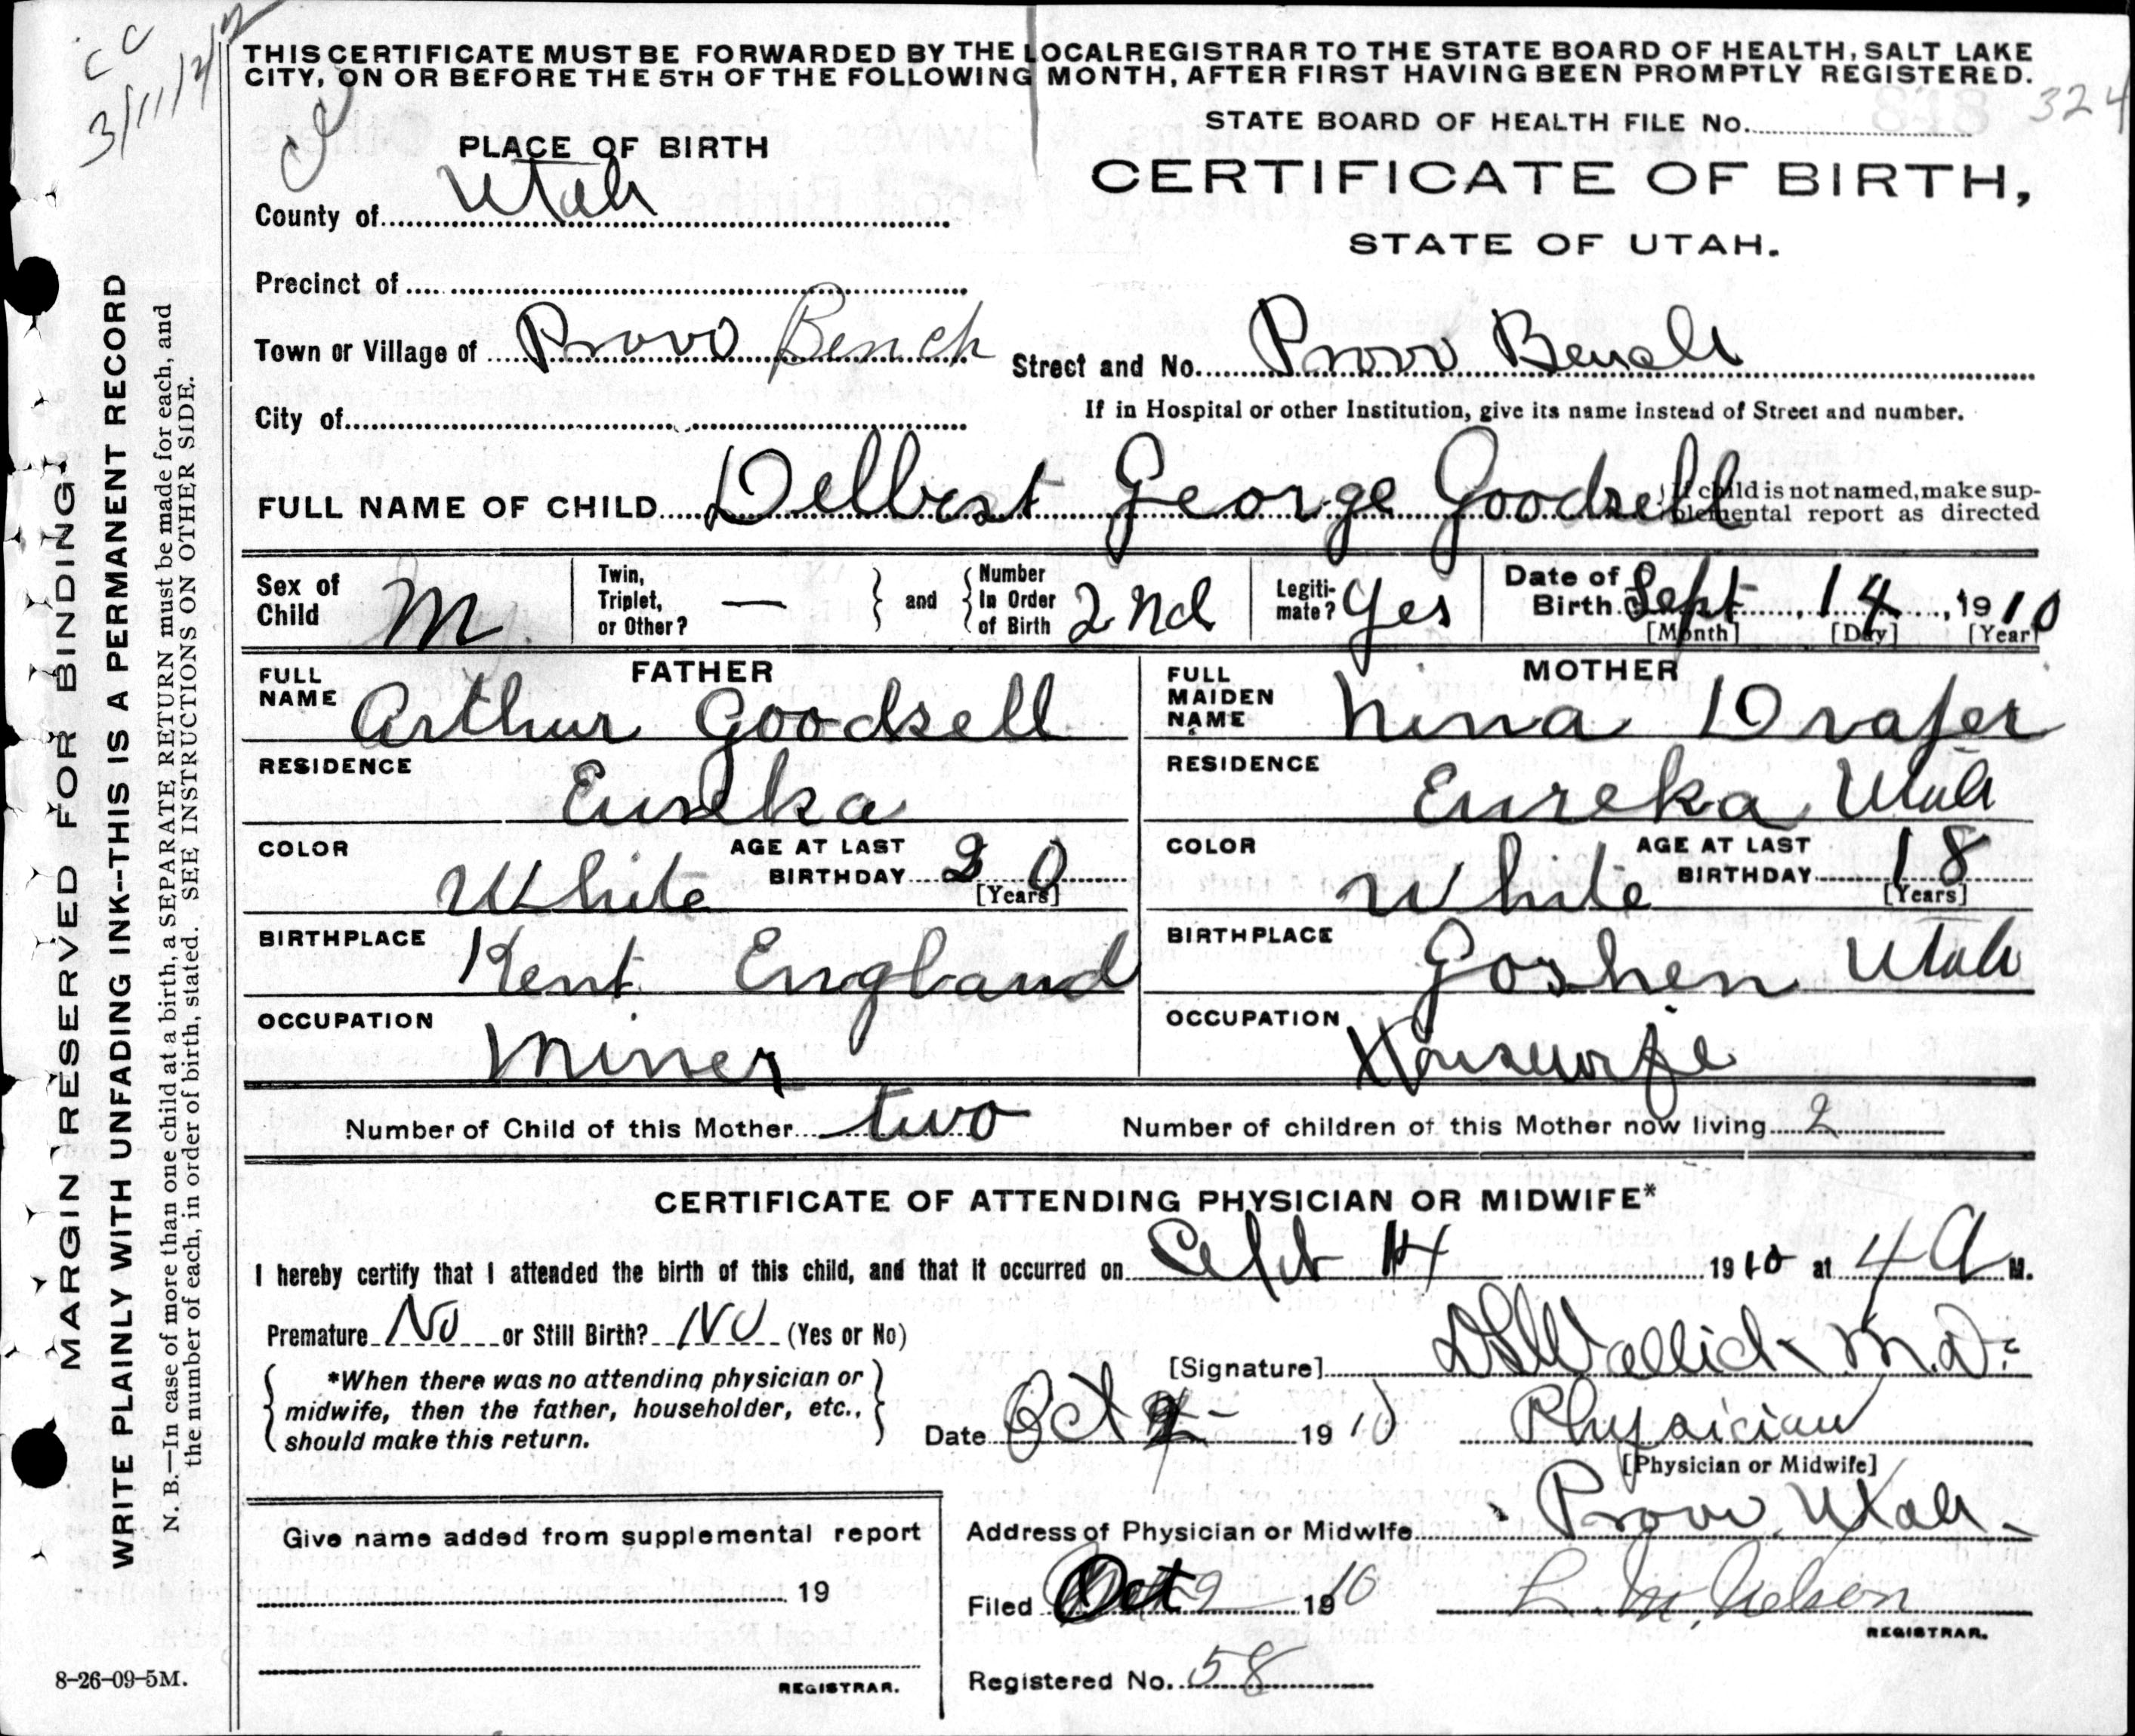 cc
3/11/42
THIS CERTIFICATE MUST BE FORWARDED BY THE LOCAL REGISTRAR TO THE STATE BOARD OF HEALTH, SALT LAKE
CITY, ON OR BEFORE THE 5TH OF THE FOLLOWING MONTH, AFTER FIRST HAVING BEEN PROMPTLY REGISTERED.
324
STATE BOARD OF HEALTH FILE No.
PLACE OF BIRTH
CERTIFICATE OF BIRTH,
County of Utah
STATE OF UTAH.
Precinct of
Town or Village of Provo Bench
Street and No. Provo Bench
City of
If in Hospital or other Institution, give its name instead of Street and number.
FULL NAME OF CHILD Delbert George Goodsell
If child is not named, make sup-
plemental report as directed
Sex of Child M.
Twin, Triplet, or Other? —
and
Number In Order of Birth 2nd
Legiti-mate? Yes
Date of Birth Sept 14, 1910
[Month] [Day] [Year]
FATHER
FULL NAME Arthur Goodsell
RESIDENCE Eureka
COLOR White AGE AT LAST BIRTHDAY 30 [Years]
BIRTHPLACE Kent England
OCCUPATION Miner
MOTHER
FULL MAIDEN NAME Nina Draper
RESIDENCE Eureka Utah
COLOR White AGE AT LAST BIRTHDAY 18 [Years]
BIRTHPLACE Goshen Utah
OCCUPATION Housewife
Number of Child of this Mother two Number of children of this Mother now living 2
CERTIFICATE OF ATTENDING PHYSICIAN OR MIDWIFE*
I hereby certify that I attended the birth of this child, and that it occurred on Sept 14 1910 at 4 A M.
Premature No or Still Birth? No (Yes or No)
[Signature] Wallick M.D.
*When there was no attending physician or
midwife, then the father, householder, etc.,
should make this return.
Date Oct 1910 Physician
[Physician or Midwife]
Address of Physician or Midwife Provo, Utah.
Give name added from supplemental report
19
REGISTRAR.
Filed Oct 9 1910 L. M. Nelson
REGISTRAR.
Registered No. 58
8-26-09-5M.
MARGIN RESERVED FOR BINDING!
WRITE PLAINLY WITH UNFADING INK--THIS IS A PERMANENT RECORD
N. B.—In case of more than one child at a birth, a SEPARATE RETURN must be made for each, and
the number of each, in order of birth, stated. SEE INSTRUCTIONS ON OTHER SIDE.